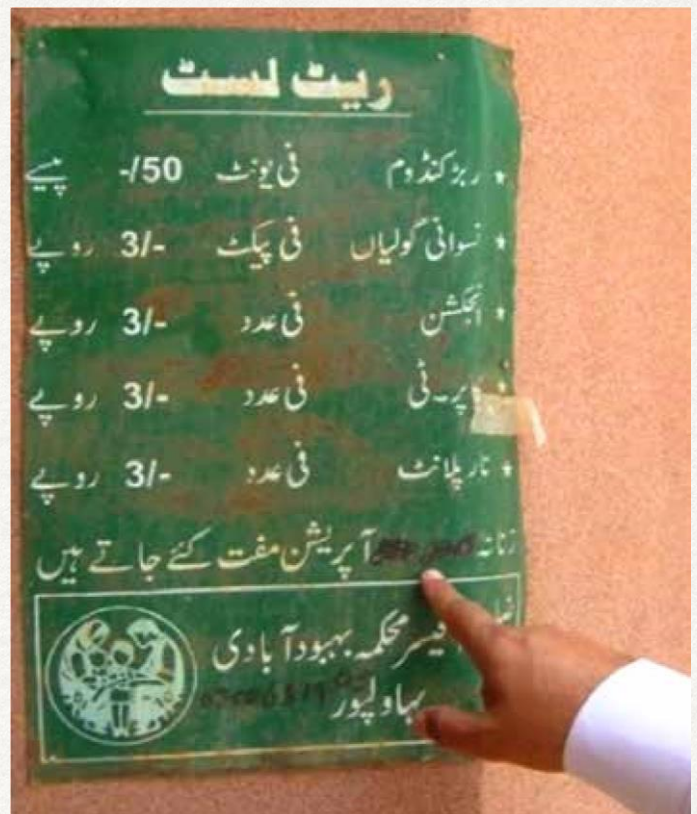 ریٹ لسٹ
* ربڑ کنڈوم فی یونٹ 50/- پیسے
* نسوانی گولیاں فی پیکٹ 3/- روپے
* انجکشن فی عدد 3/- روپے
پر-ٹی فی عدد 3/- روپے
* نار پلانٹ فی عدد 3/- روپے
زنانہ آپریشن مفت کئے جاتے ہیں
محکمہ بہبود آبادی
بہاولپور